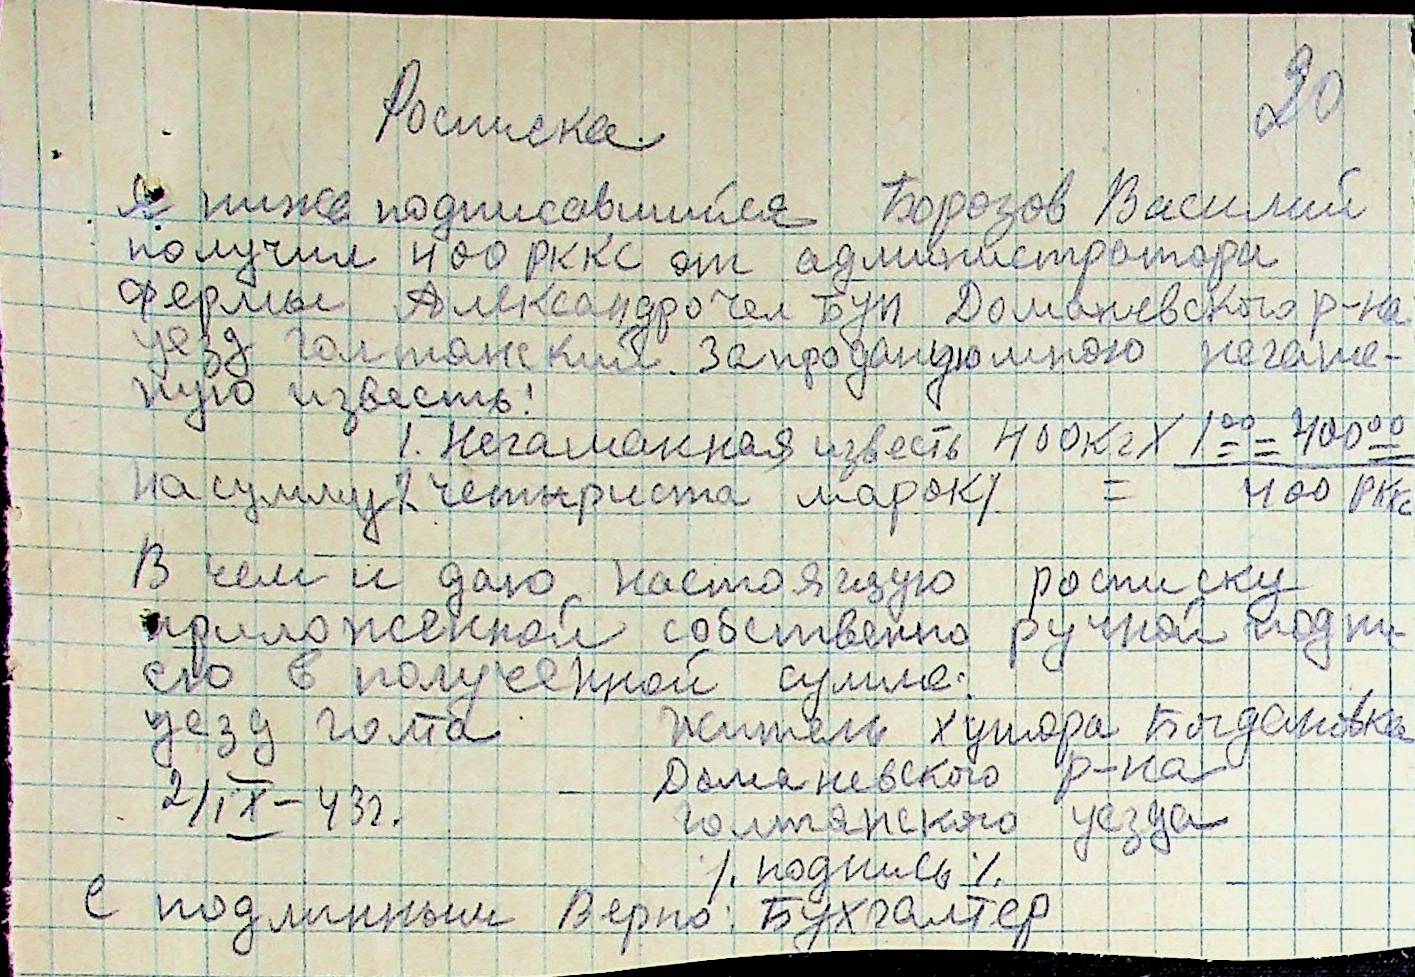 20
Росписка.
Я ниже подписавшийся Борозов Василий
получил 400 РККС от администратора
фермы Александрочел Бун Доманевского р-на
уезд голтянский. За проданую мною негаше-
ную известь!
1. Негашанная известь 400 кг X 1⁰⁰ = 400⁰⁰
На сумму /. четыриста марок /. = 400 РККС
В чем и даю настоящую росписку
приложенной собственно ручной подпи-
сю в полученной сумме:
уезд голта житель хутора Богдановка
2/IX-43г. – Доманевского р-на
голтянского уезда
/. подпись /.
С подлинным Верно: Бухгалтер